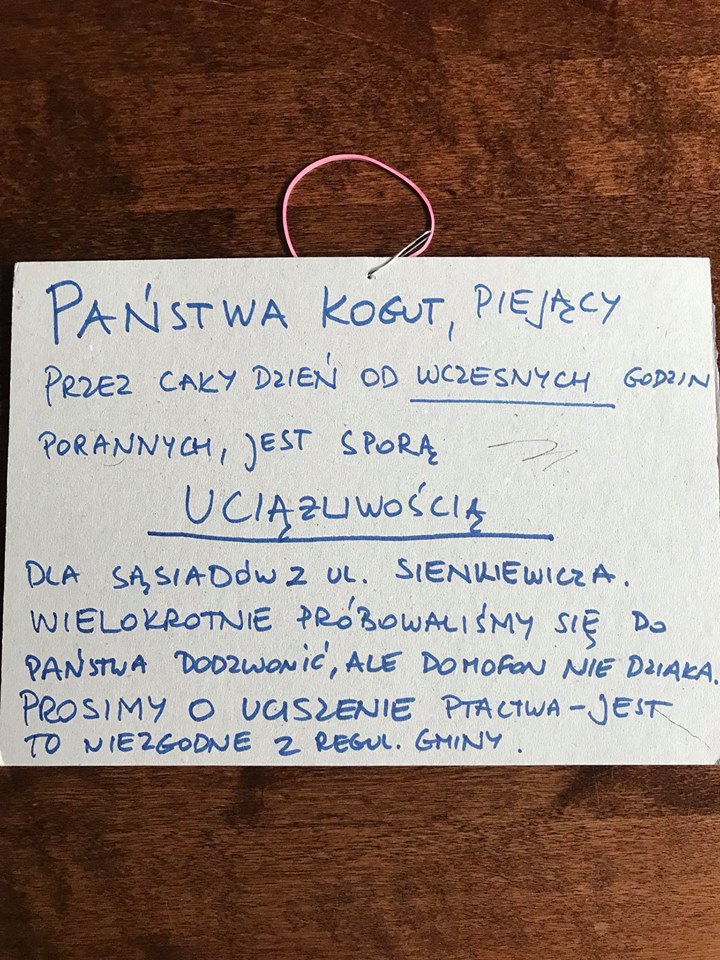 PAŃSTWA KOGUT, PIEJĄCY
PRZEZ CAŁY DZIEŃ OD WCZESNYCH GODZIN
PORANNYCH, JEST SPORĄ
UCIĄŻLIWOŚCIĄ
DLA SĄSIADÓW Z UL. SIENKIEWICZA.
WIELOKROTNIE PRÓBOWALIŚMY SIĘ DO
PAŃSTWA DODZWONIĆ, ALE DOMOFON NIE DZIAŁA.
PROSIMY O UCISZENIE PTACTWA - JEST
TO NIEZGODNE Z REGUL. GMINY.